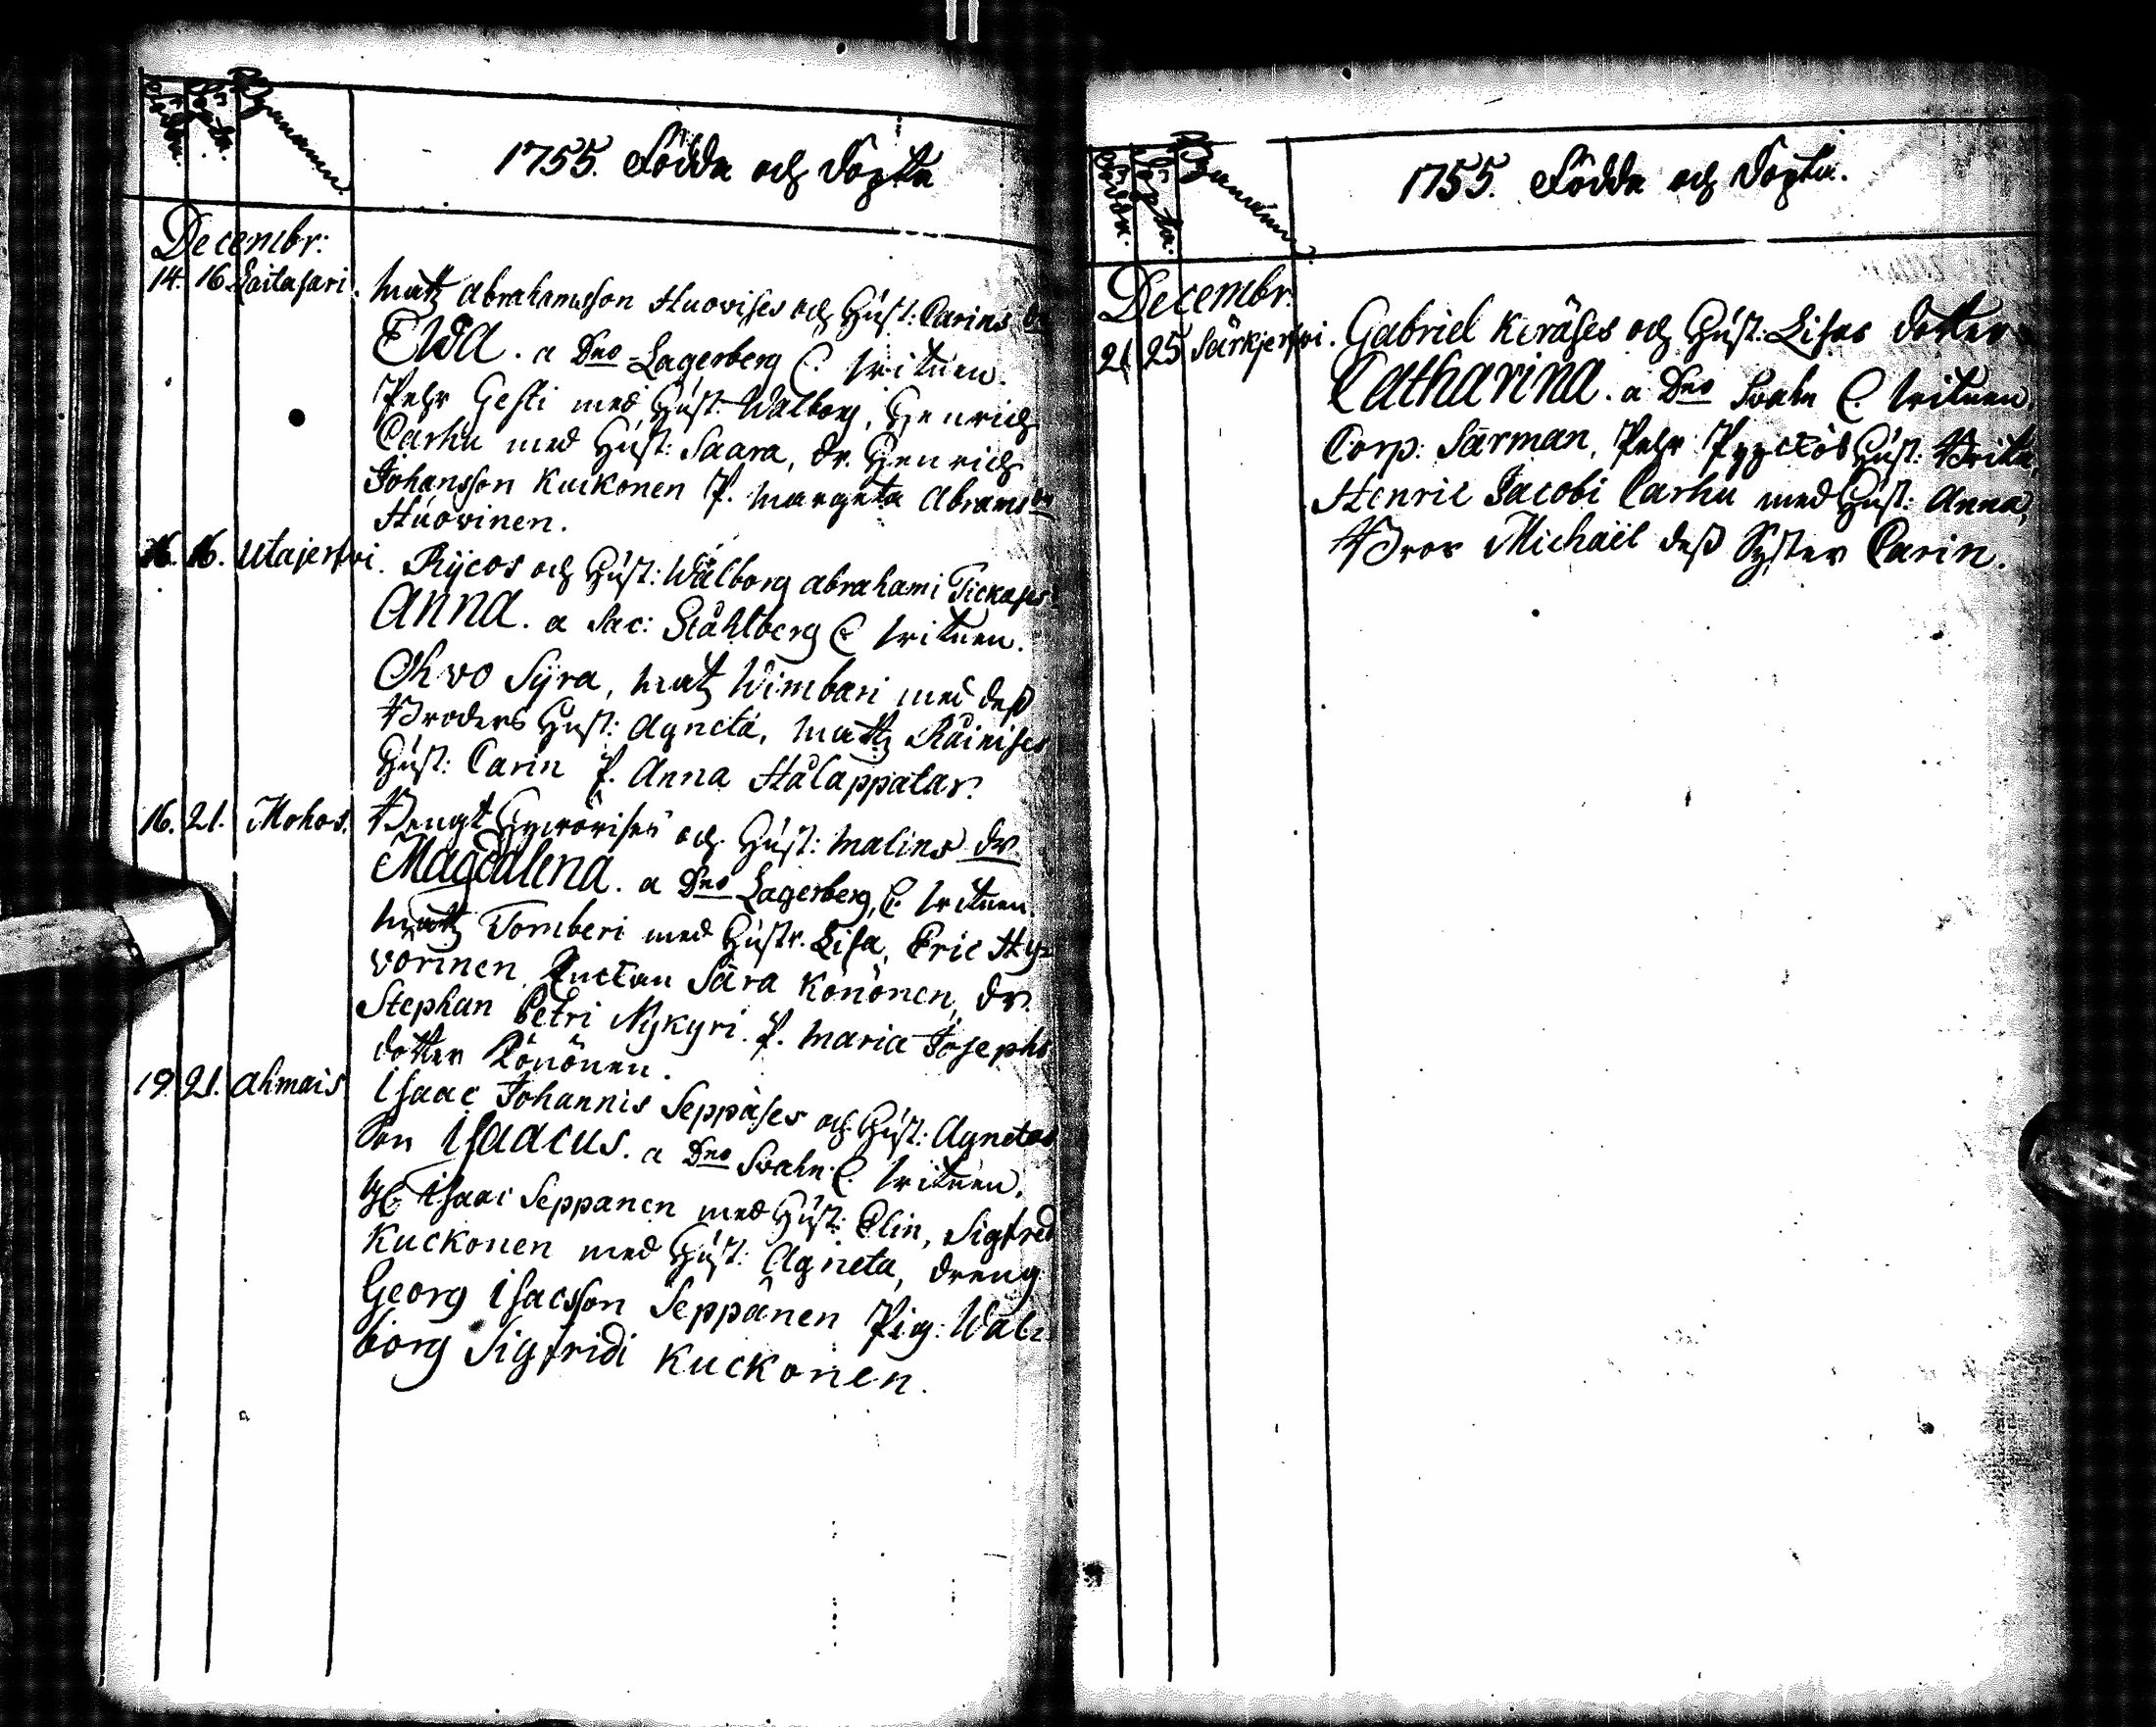 Födda.
Döpta.
Bynamn.
1755. Födda och Döpta
Decembr:
14. 16 Laitasari. Matz Abrahamsson Huovises och Hust: Carins dr
EWa. a Dno Lagerberg C. Wittnen.
Pehr Gesti med Hust. Walborg, Henrich
Carhu med Hust: Saara, Dr. Henrich
Johansson Kuckonen P. Margeta Abrams dr
Huovinen.
16. 16. Utajerfwi. Rycos och Hust: Walborg Abrahami Tickases
Anna. a Sac: Ståhlberg C Wittnen.
Ohvo Syra, Matz Wimbari med dess
Broders Hust: Agneta, Mattz Räinises
Hust: Carin P. Anna Hålappatar.
16. 21. Mohos. Bengt Hyvörises och Hust: Malins dr
Magdalena. a Dno Lagerberg, C. Wittnen
Matz Tomberi med Hustr. Lisa, Eric Hy-
vörinen, Enckan Sara Könönen, Dr.
Stephan Petri Nykyri. P. Maria Josephs
dotter Könönen.
19. 21. Ahmais Isaac Johannis Seppäses och Hust: Agnetas
Son Isaacus. a Dno Svahn C. Wittnen.
Isaac Seppänen med Hust: Elin, Sigfred
Kuckonen med Hust: Agneta, dreng
Georg Isacsson Seppänen Pig: Wal-
borg Sigfridi Kuckonen.
Födda.
Döpta.
Bynamn
1755. Födda och Döpta.
Decembr.
21 25 Särkjerfwi. Gabriel Keräses och Hust: Lisas dotter
Catharina. a Dno Svahn C. Wittnen.
Corp: Särman, Pehr Pyyckös Hust: Brita,
Henric Jacobi Carhu med Hust: Anna,
Bror Michaël dess Syster Carin.